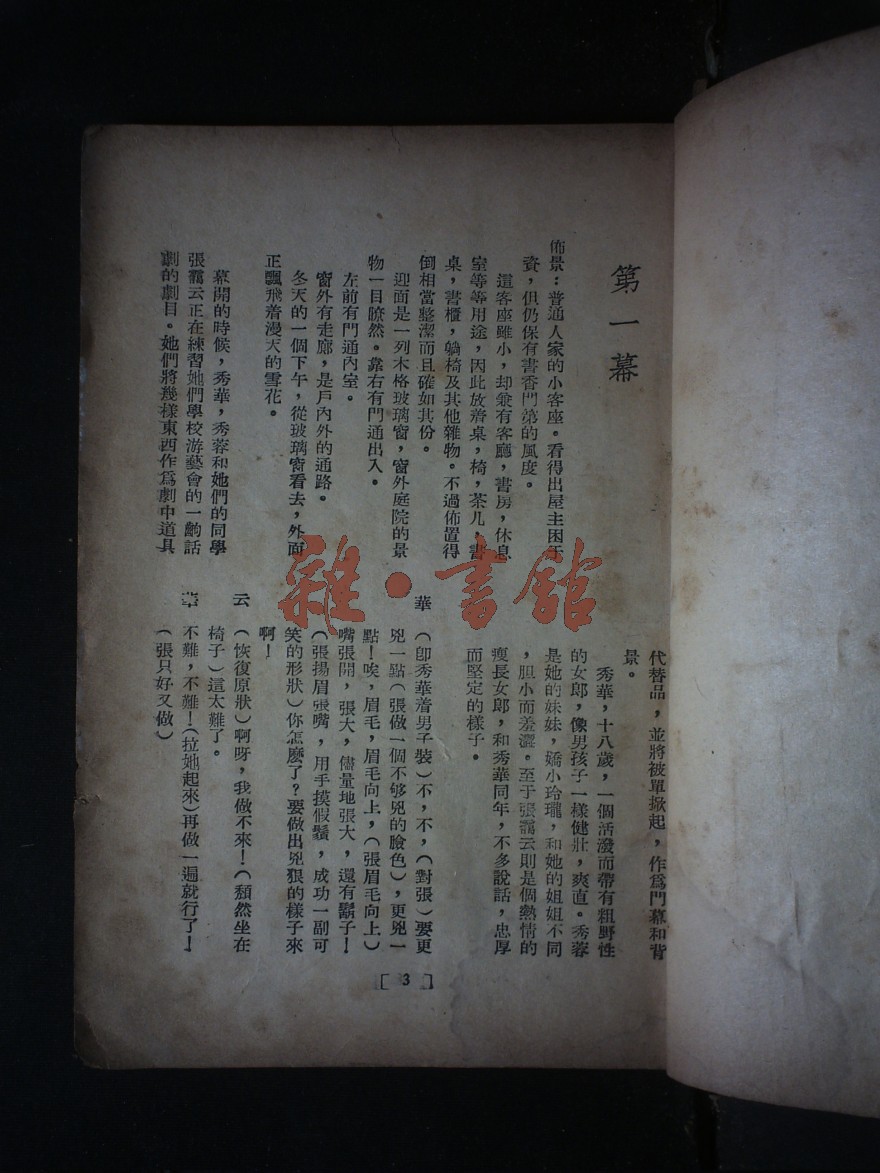 第一幕
佈景：普通人家的小客座。看得出屋主困于
賚，但仍保有書香門第的風度。
這客座雖小，却兼有客廳，書房，休息
室等等用途，因此放着桌，椅，茶儿，書
桌，書櫃，躺椅及其他雜物。不過佈置得
倒相當整潔而且確如其份。
迎面是一列木格玻璃窗，窗外庭院的景
物一目瞭然。靠右有門通出入。
左前有門通內室。
窗外有走廊，是戶內外的通路。
冬天的一個下午，從玻璃窗看去，外面
正飄飛着漫天的雪花。
幕開的時候，秀華，秀蓉和她們的同學
張靄云正在練習她們學校游藝會的一齣話
劇的劇目。她們將幾樣東西作爲劇中道具
代替品，並將被單掀起，作爲門幕和背
景。
秀華，十八歲，一個活潑而帶有粗野性
的女郎，像男孩子一樣健壯，爽直。秀蓉
是她的妹妹，嬌小玲瓏，和她的姐姐不同
，胆小而羞澀。至于張靄云則是個熱情的
瘦長女郎，和秀華同年，不多說話，忠厚
而堅定的樣子。
華　（卽秀華着男子裝）不，不，（對張）要更
兇一點（張做一個不够兇的臉色），更兇一
點！唉，眉毛，眉毛向上，（張眉毛向上）
嘴張開，張大，儘量地張大，還有鬍子！
（張揚眉張嘴，用手摸假鬚，成功一副可
笑的形狀）你怎麼了？要做出兇狠的樣子來
啊！
云　（恢復原狀）啊呀，我做不來！（頹然坐在
椅子）這太難了。
華　不難，不難！（拉她起來）再做一遍就行了！
（張只好又做）
[3]
雜·書館